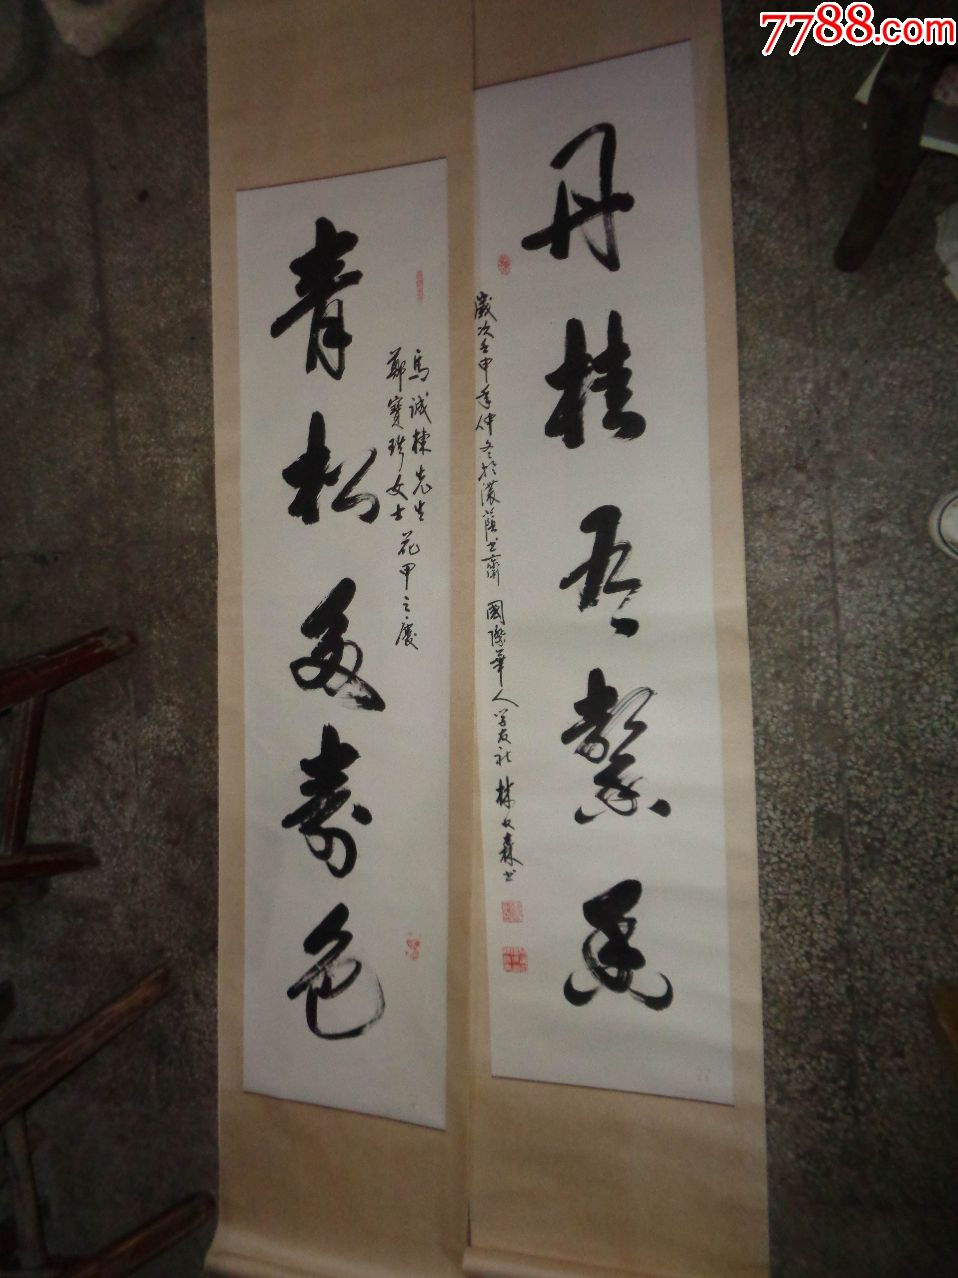 7788.com
丹桂有繁香
歲次壬申年仲冬於濃蔭书齋 國際華人学友社 林文森书
馬誠棟先生 花甲之慶
鄭寶珍女士
青松多壽色